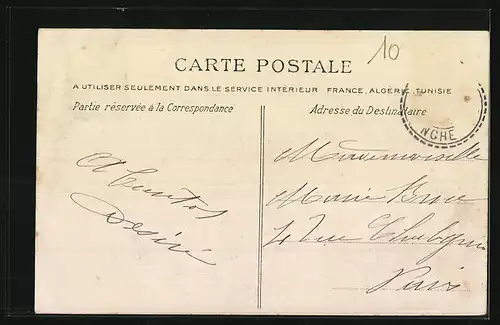 10
CARTE POSTALE
A UTILISER SEULEMENT DANS LE SERVICE INTÉRIEUR FRANCE, ALGÉRIE, TUNISIE
Partie réservée à la Correspondance
Adresse du Destinataire
NCHE
Mademoiselle
Marie
Rue
Paris
A
Désiré